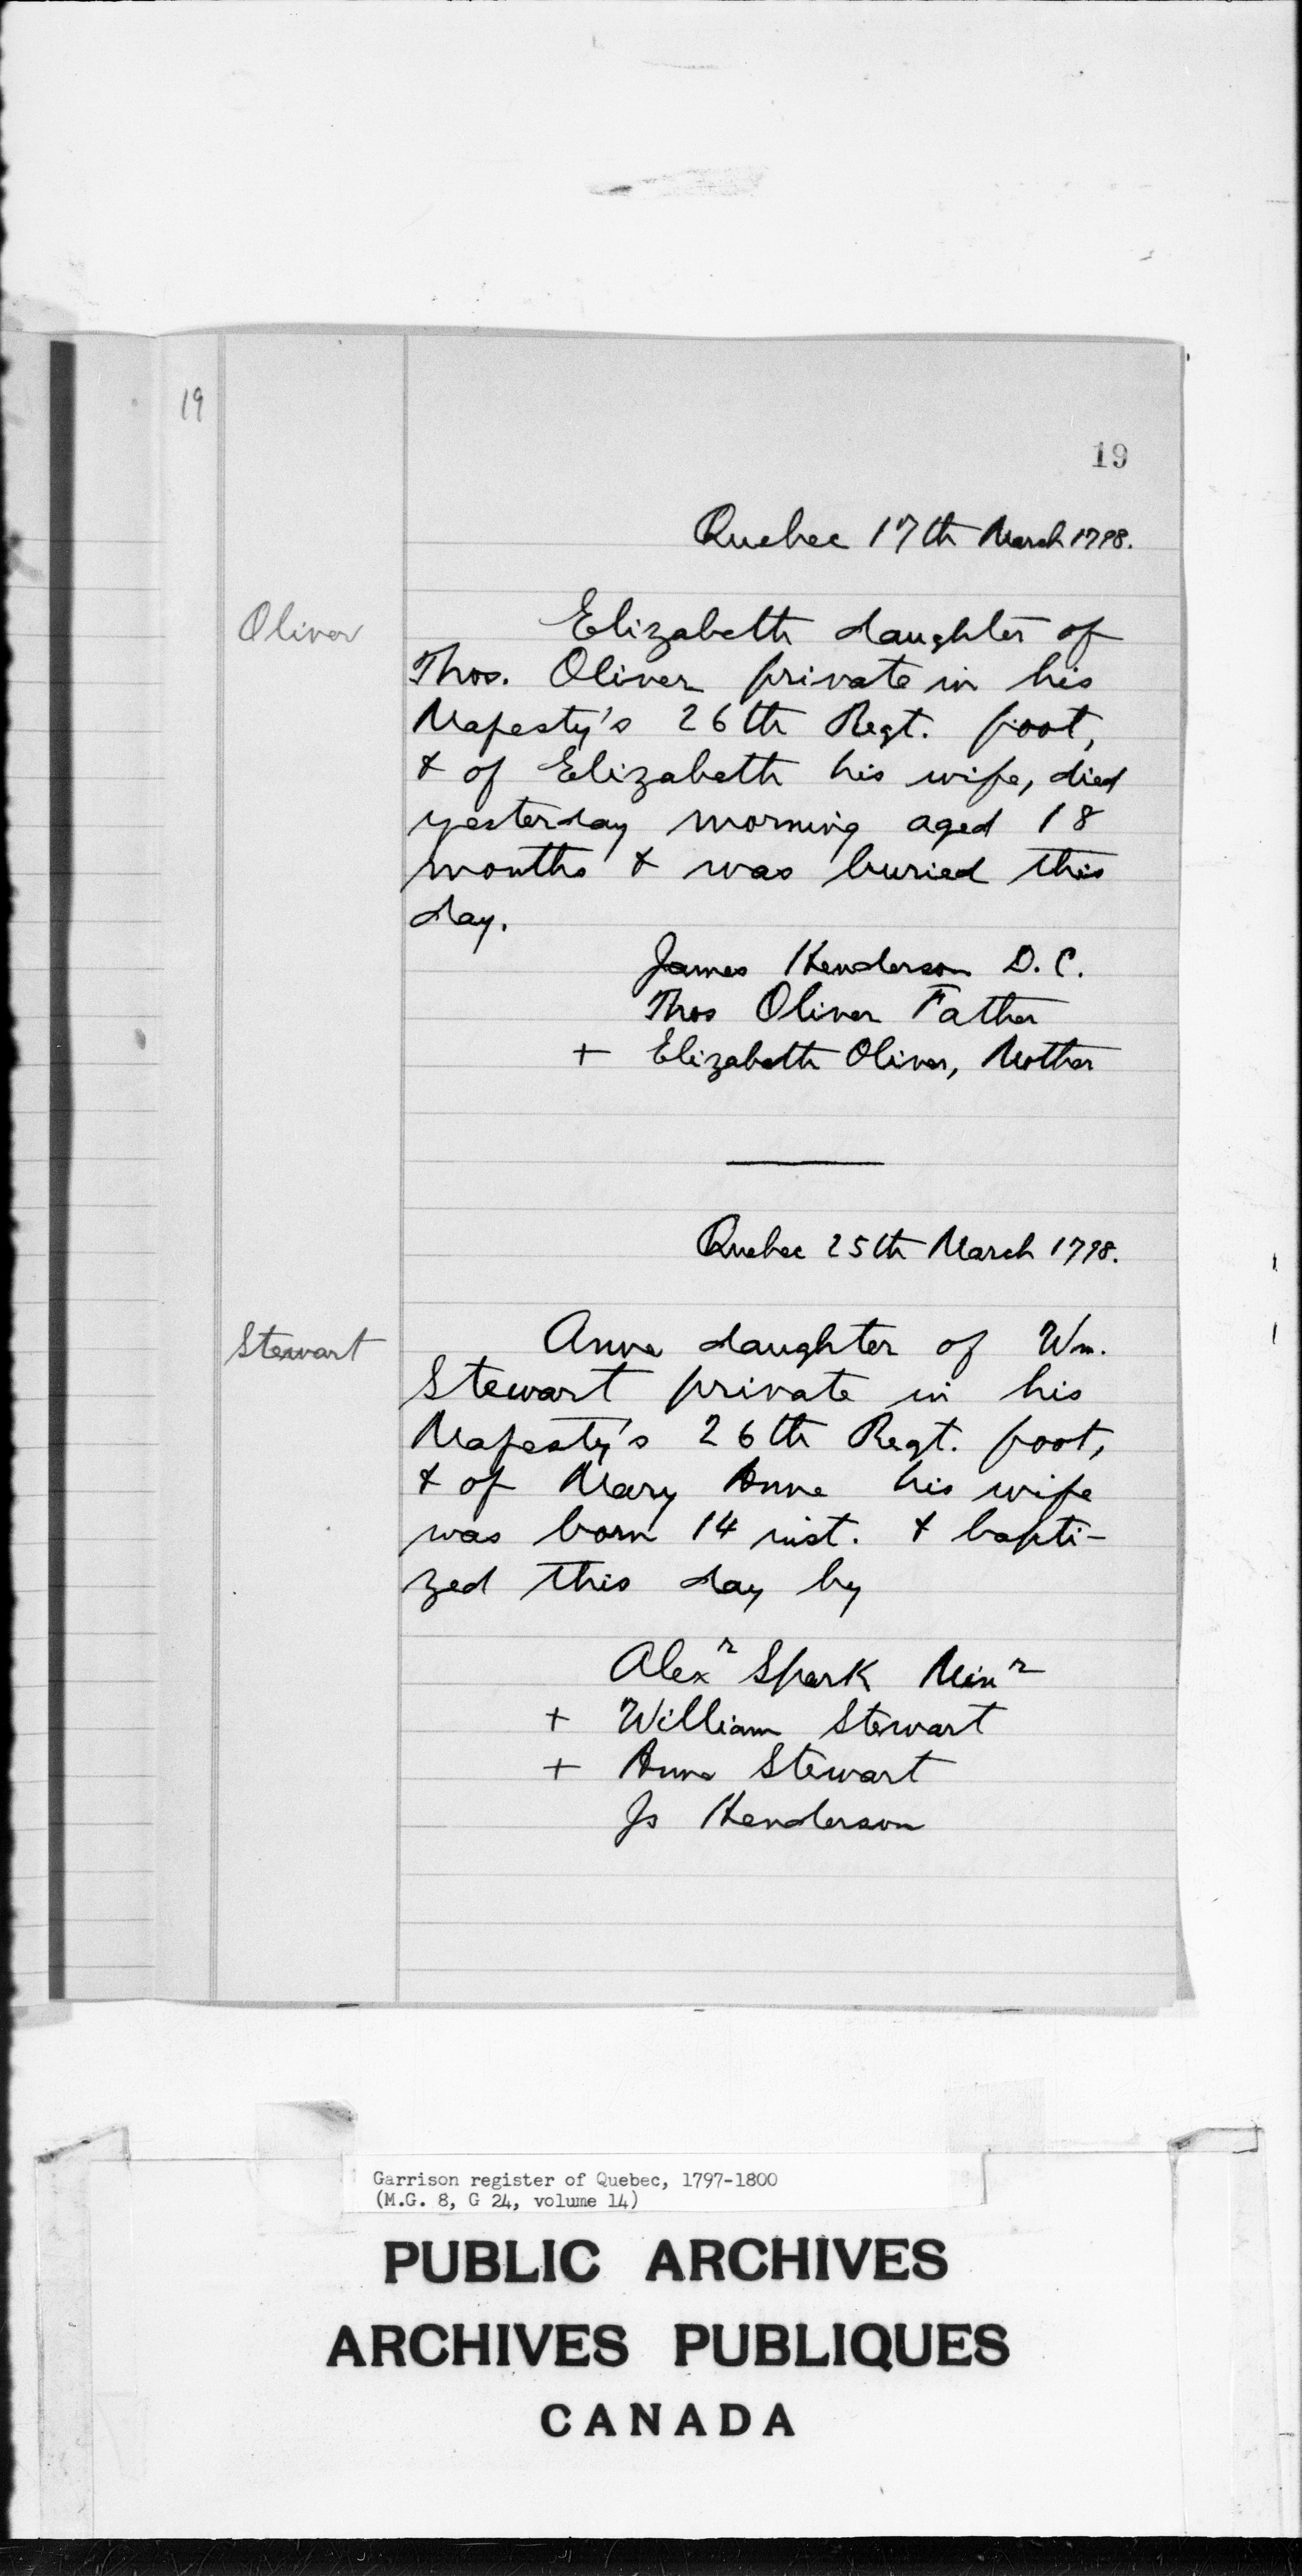 19
19
Quebec 17th March 1798.
Oliver
Elizabeth daughter of
Thos. Oliver private in his
Majesty's 26th Regt. foot,
& of Elizabeth his wife, died
yesterday morning aged 18
months & was buried this
day.
James Henderson D.C.
Thos Oliver Father
+ Elizabeth Oliver, Mother
Quebec 25th March 1798.
Stewart
Anne daughter of Wm.
Stewart private in his
Majesty's 26th Regt. foot,
& of Mary Anne his wife
was born 14 inst. & bapti-
zed this day by
Alexr Spark Minr
+ William Stewart
+ Anne Stewart
Js Henderson
Garrison register of Quebec, 1797-1800
(M.G. 8, G 24, volume 14)
PUBLIC ARCHIVES
ARCHIVES PUBLIQUES
CANADA